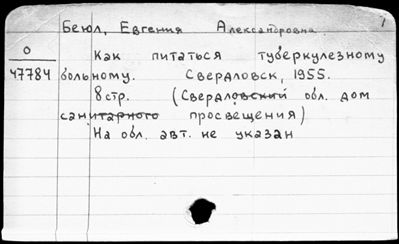 Беюл, Евгения Александровна
О
47784
Как питаться туберкулезному
больному. Свердловск, 1955.
8 стр. (Свердловский обл. дом
санитарного просвещения)
На обл. авт. не указан